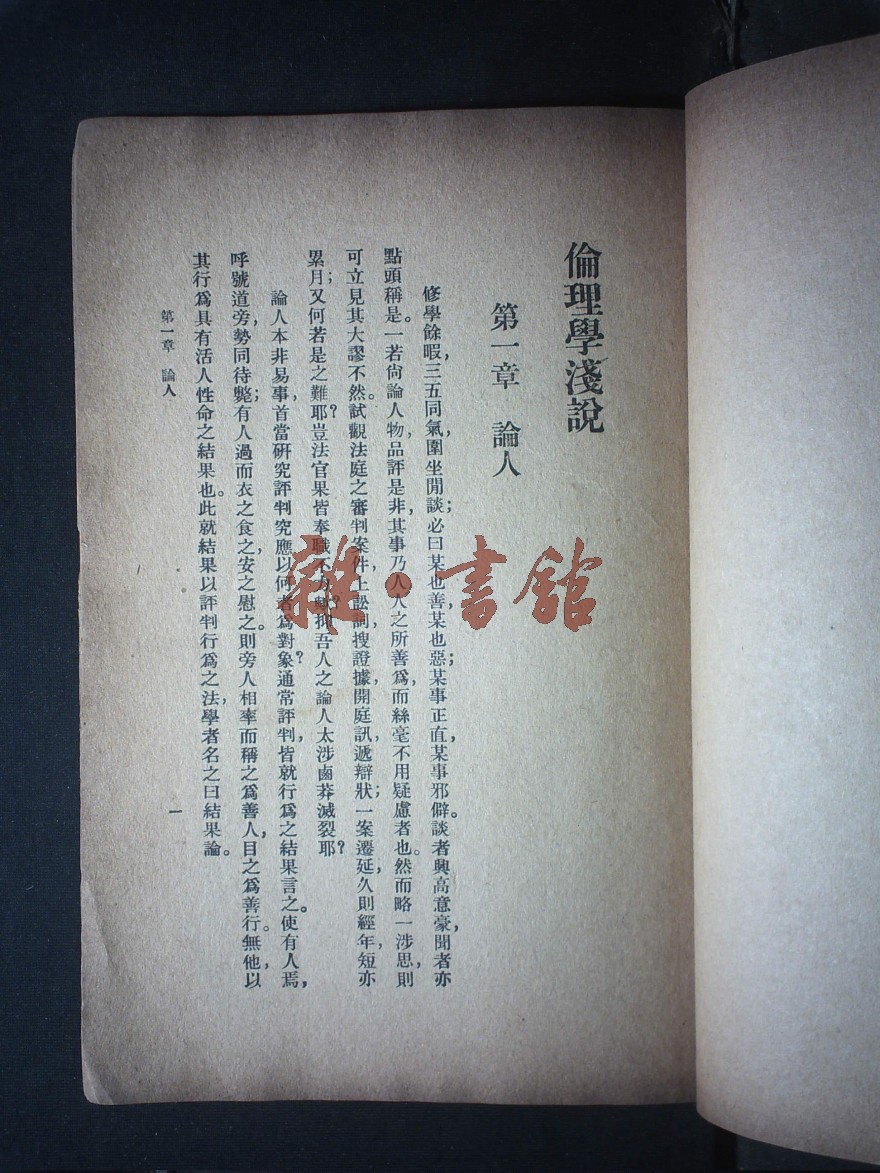 倫理學淺說
第一章 論人
修學餘暇，三五同氣，圍坐閒談；必曰某也善，某也惡；某事正直，某事邪僻。談者興高意豪，聞者亦
點頭稱是。一若尙論人物，品評是非，其事乃人人之所善爲，而絲毫不用疑慮者也。然而略一涉思，則
可立見其大謬不然。試觀法庭之審判案件，上訟詞，搜證據，開庭訊，遞辯狀；一案遷延，久則經年，短亦
累月；又何若是之難耶？豈法官果皆奉職不力歟？抑吾人之論人太涉鹵莽滅裂耶？
論人本非易事，首當硏究評判究應以何者爲對象？通常評判，皆就行爲之結果言之。使有人焉，
呼號道旁，勢同待斃；有人過而衣之食之，安之慰之。則旁人相率而稱之爲善人，目之爲善行。無他，以
其行爲具有活人性命之結果也。此就結果以評判行爲之法，學者名之曰結果論。
第一章 論人
一
雜·書館